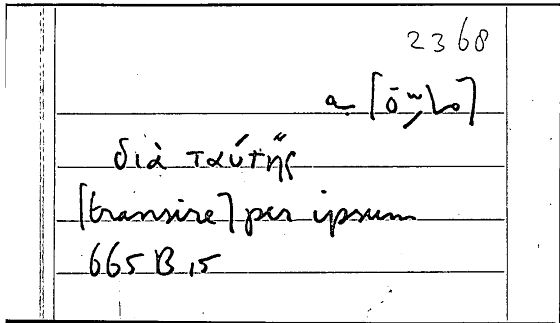 2368
διὰ ταύτης
[transire] per ipsum
665 B 15